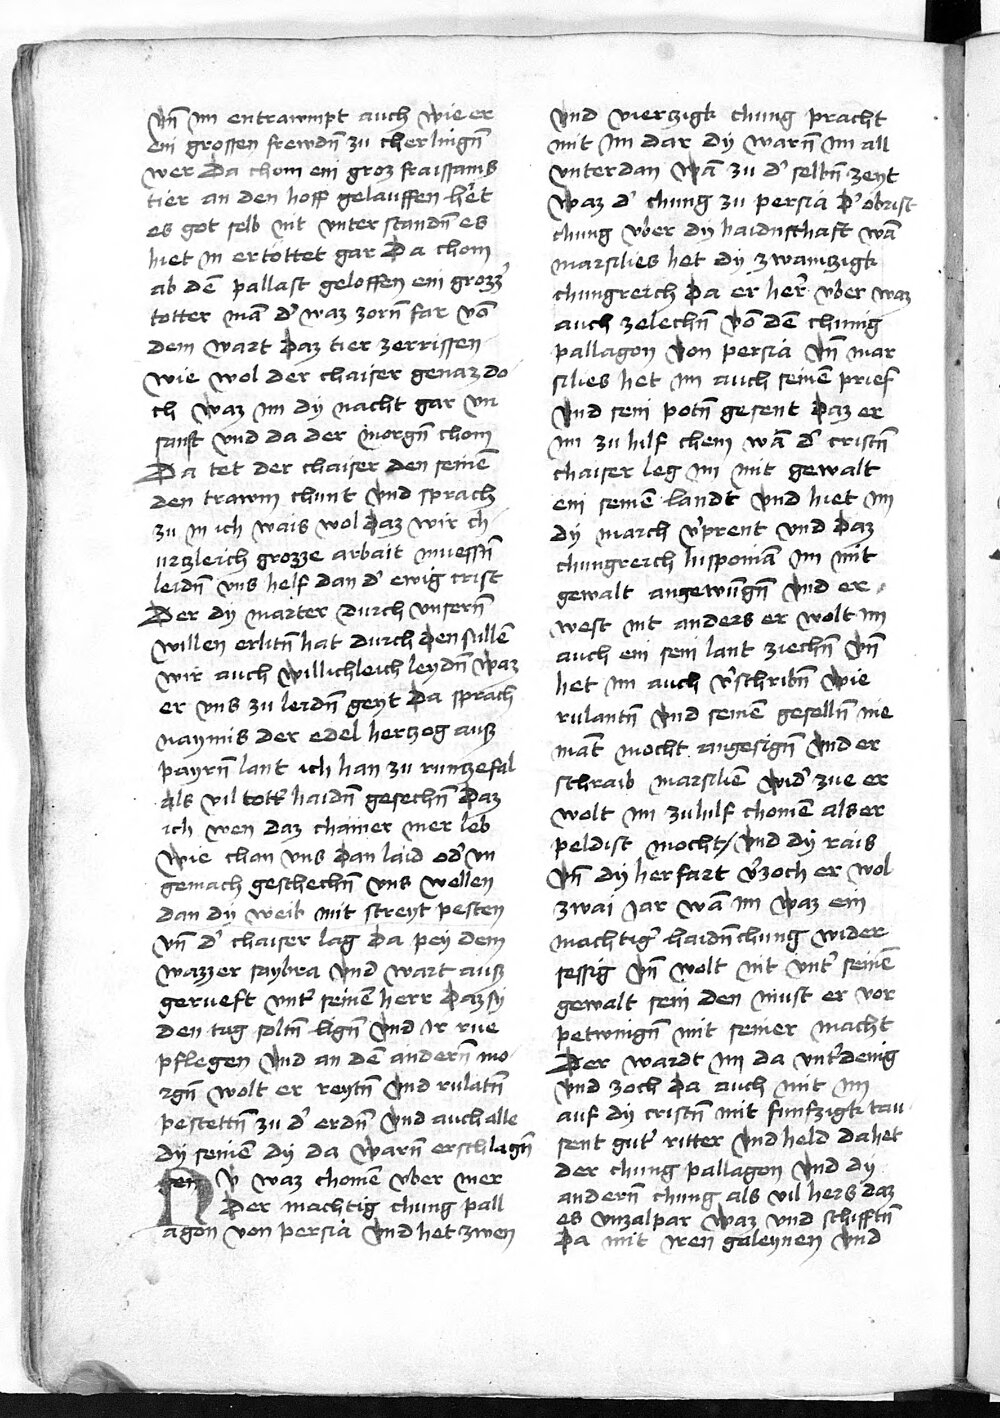 vn̄ im entrawmpt auch wie er
ein grossen frewdn̄ zu cherlingn̄
wer Da chom ein groz fraissams
tier an den hoff gelauffen het
es got selb nit unter standn̄ es
hiet in ertöttet gar Da chom
ab dē pallast geloffen ein grozz'
totter man d' waz zorn̄ far vō
dem wart daz tier zerrissen
wie wol der chaiser genaz do
ch waz im dy nacht gar un
sanft vnd da der morgn̄ chom
Da tet der chaiser den seinē
den trawm chunt vnd sprach
zu in ich wais wol daz wir ch
urczleich grozze arbait muessn̄
leidn̄ vns helf dan d' ewig crist
Der dy marter durch unsern̄
willen erlitn̄ hat durch den sullē
wir auch willichleich leydn̄ waz
er vns zu leidn̄ geyt Da sprach
naymis der edel herczog auß
payrn̄ lant ich han zu runtzefal
als vil totk haidn̄ gesechn̄ Daz
ich wen daz chainer mer leb
wie chan vns dan laid od' vn
gemach geschechn̄ vns wellen
dan dy weib mit streyt pesten
vn̄ d' chaiser lag da pey dem
wazzer saybra vnd wart auß
gerueft vnt' seinē herr Daz sy
den tag soltn̄ lign̄ vnd ir rue
pflegen vnd an dē andern̄ mo
rgn̄ wolt er reytn̄ vnd rulatn̄
pestettn̄ zu d' erdn̄ vnd auch alle
dy seinen dy da warn̄ erschlagn̄
gen
Nv waz chomē vber mer
Der machtig chung pall
agon von persia vnd het zwen
vnd vierzigk chung pracht
mit im dar dy warn̄ im all
vnterdan wā zu d' selbn̄ zeyt
waz d' chung zu persia d' obrist
chung vber dy haidnschaft wā
marsilies het dy zwaintzigk
chungreich Da er her' vber waz
auch zelechn̄ vō dē chunig
pallagon von persia vn̄ mar
silies het im auch seinē prief
vnd sein potn̄ gesent Daz er
im zu hilf chem wā d' cristn̄
chaiser leg im mit gewalt
ein seinē landt vnd hiet im
dy march v'prent vnd daz
chungreich hisponiā im mit
gewalt angewūgn̄ vnd er
west nit anders er wolt im
auch ein sein lant ziechn̄ vn̄
het im auch v'schribn̄ wie
rulantn̄ vnd seinē geselln̄ nie
māt mocht angesign̄ vnd er
schraib marsiliē wid' zue er
wolt im zu hilf chomē als er
peldist mocht/ vnd dy rais
vn̄ dy herfart v'zoch er wol
zwai jar wā im waz ein
machtig' haidn̄chung wider
sessig vn̄ wolt nit vnt' seinē
gewalt sein den must er vor
petwingn̄ mit seiner macht
Der wardt im da vnt'denig
vnd zoch da auch mit im
auf dy cristn̄ mit funfzigk tau
sent gut' ritter vnd held da het
der chung pallagon vnd dy
andern̄ chung als vil hers daz
es vnzalpar waz vnd schifftn̄
Da mit iren galeynen vnd